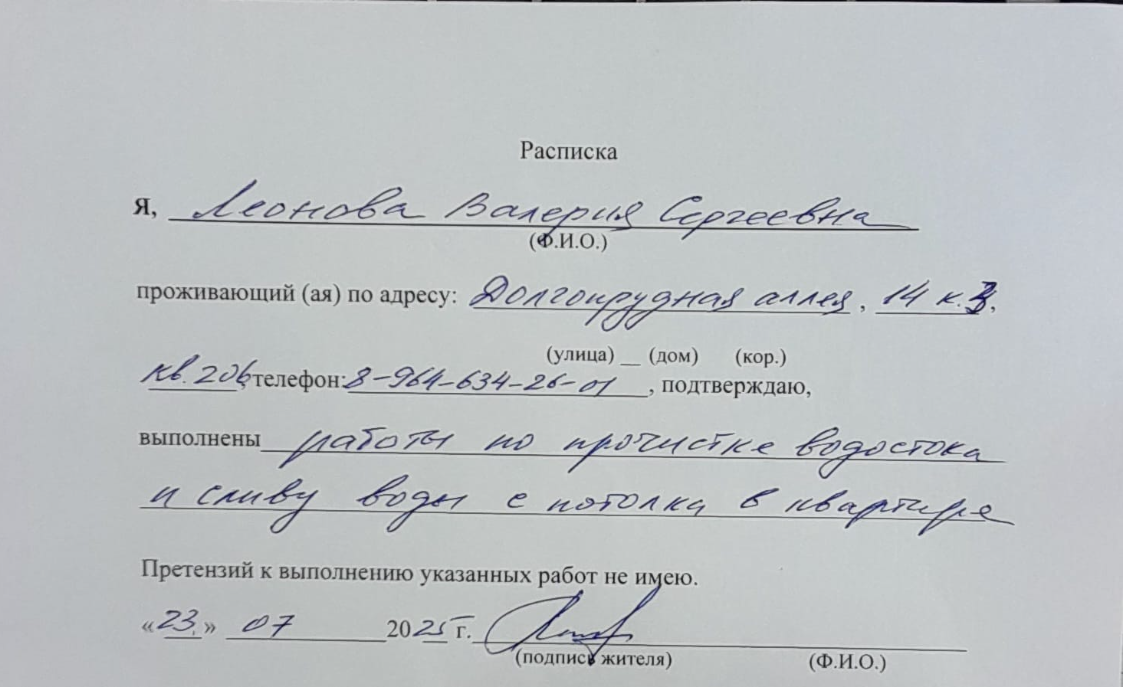 Расписка
Я, Леонова Валерия Сергеевна
(Ф.И.О.)
проживающий (ая) по адресу: Долгопрудная аллея, 14 к.3,
(улица) __ (дом) (кор.)
кв. 206, телефон: 8-964-634-26-01, подтверждаю,
выполнены работы по прочистке водостока
и сливу воды с потолка в квартире
Претензий к выполнению указанных работ не имею.
«23.» 07 2025 г.
(подпись жителя) (Ф.И.О.)